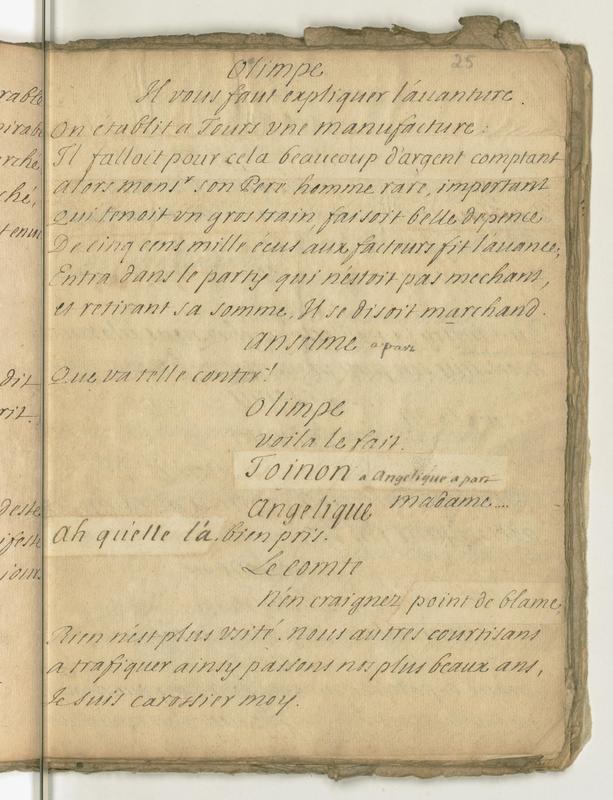 25
Olimpe
Il vous faut expliquer l'auanture.
On établit a Tours vne manufacture :
Il falloit pour cela beaucoup d'argent comptant
Alors monsr son Pere homme rare, important
Qui tenoit vn gros train faisoit belle depence
De cinq cens mille écus aux facteurs fit l'auance,
Entra dans le party qui n'éstoit pas mechant,
et retirant sa somme, Il se disoit marchand.
Anselme a part
Que va telle conter!
Olimpe
voila le fait.
Toinon a Angelique a part
madame....
Angelique
Ah qu'elle l'a bien pris.
Le comte
N'en craignez point de blame,
Rien n'est plus vsité. nous autres courtisans
a trafiquer ainsy passons nos plus beaux ans,
Je suis carossier moy.
rable
pirabl
erché
ché,
tenu
dit
rit.
deste
ifeste
jours